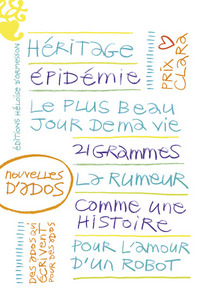 ÉDITIONS HÉLOÏSE D'ORMESSON
HÉRITAGE
ÉPIDÉMIE
LE PLUS BEAU
JOUR DE MA VIE
21 GRAMMES
LA RUMEUR
COMME UNE
HISTOIRE
POUR L'AMOUR
D'UN ROBOT
PRIX
CLARA
NOUVELLES
D'ADOS
DES ADOS QUI
ÉCRIVENT
POUR DES ADOS